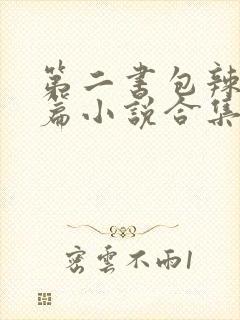 第二書包辣
篇小說合集
密雲不雨1